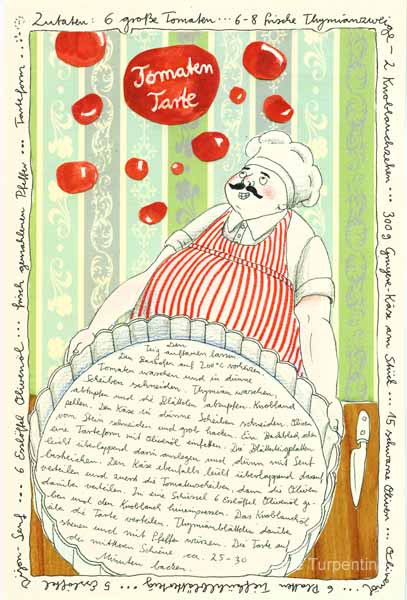 Zutaten: 6 große Tomaten... 6-8 frische Thymianzweige - 2 Knoblauchzehen... 300 g Gruyere-Käse am Stück... 15 schwarze Oliven...
6 Platten Tiefkühlblätterteig... 5 Esslöffel Dijon-Senf... 6 Esslöffel Olivenöl... frisch gemahlenen Pfeffer... Tarteform...
Tomaten
Tarte
Den
Teig auftauen lassen
Den Backofen auf 200°C vorheizen
Tomaten waschen und in dünne
Scheiben schneiden. Thymian waschen,
abtupfen und die Blätter abzupfen. Knoblauch
pellen. Den Käse in dünne Scheiben schneiden. Oliven
vom Stein schneiden und grob hacken. Ein Backblech oder
eine Tarteform mit Olivenöl einfetten. Die Blätterteigplatten
leicht überlappend darin auslegen und dünn mit Senf
bestreichen. Den Käse ebenfalls leicht überlappend darauf
verteilen und zuerst die Tomatenscheiben, dann die Oliven
darüber verteilen. In eine Schüssel 6 Esslöffel Olivenöl ge-
ben und den Knoblauch hineinpressen. Das Knoblauchöl
über die Tarte verteilen. Thymianblättchen darüber
streuen und mit Pfeffer würzen. Die Tarte auf
der mittleren Schiene ca. 25-30
Minuten backen.
Turpentin